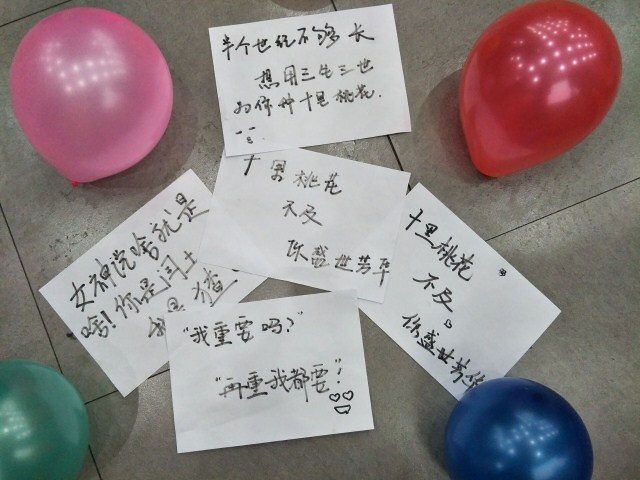 半个世纪不够长
想用三生三世
为你种十里桃花.
十里桃花
不及
你盛世芳华
十里桃花
不及
你盛世芳华
女神说啥就是
啥!你是闰土
我是猹
"我重要吗?"
"再重我都要"!